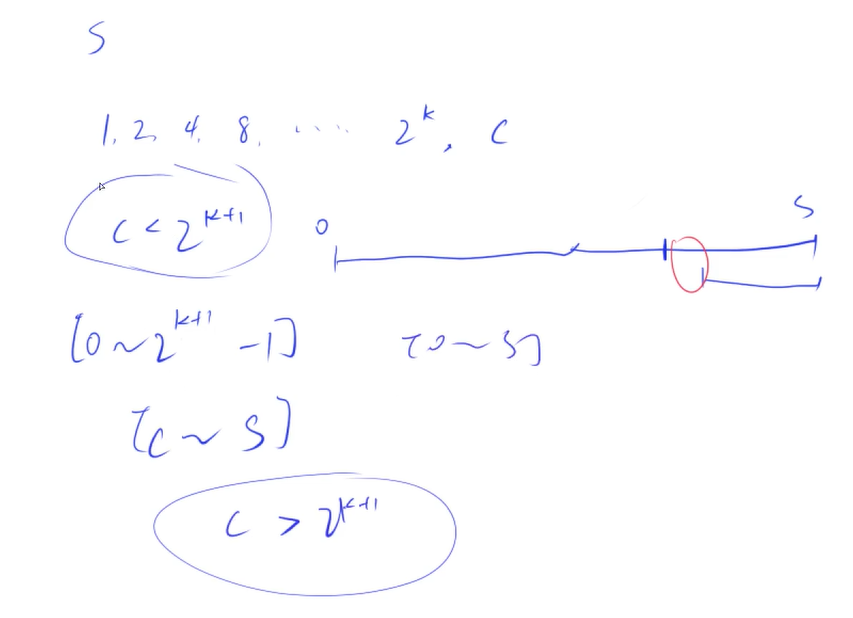 S
1, 2, 4, 8, ···· 2^k, C
C < 2^{k+1}
0 S
[0 ~ 2^{k+1} - 1] [0 ~ S]
[C ~ S]
C > 2^{k+1}